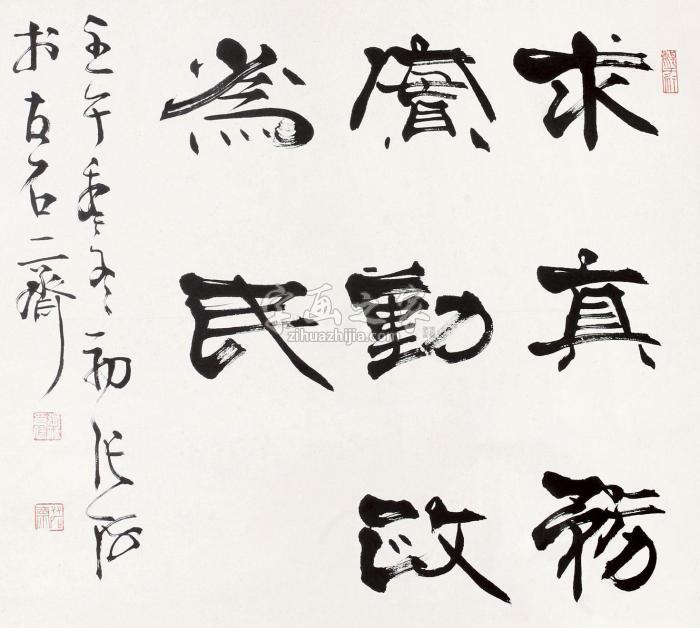 求真務
實勤政
為民
壬午季冬初張
於古石二齋
字画之家
zihuazhijia.com